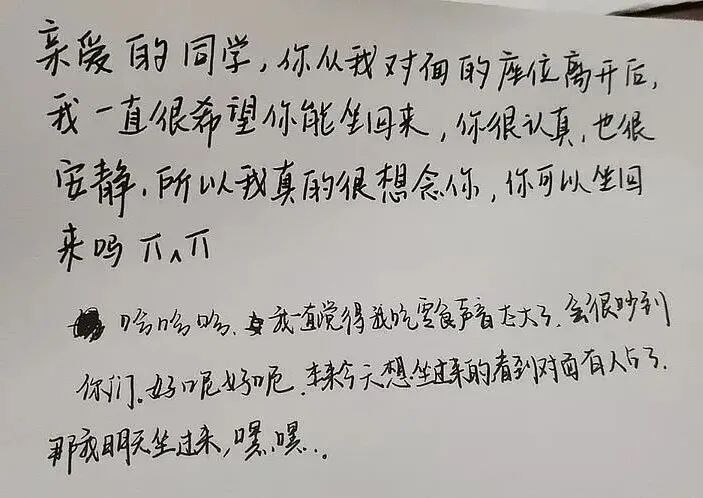 亲爱的同学，你从我对面的座位离开后，
我一直很希望你能坐回来，你很认真，也很
安静，所以我真的很想念你，你可以坐回
来吗 ㅠ^ㅠ
哈哈哈，我一直觉得我吃零食声音太大了，会很吵到
你们。好呢好呢，本来今天想坐过来的看到对面有人占了，
那我明天坐过来，嘿，嘿...